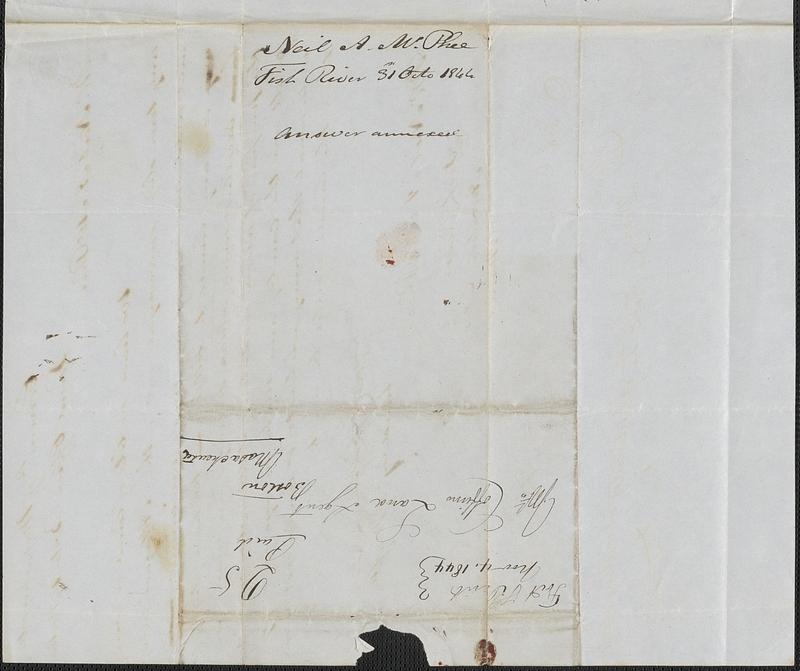 Neil A. McPhee
Fish River 31 Octo 1844
Answer annexed
Fort
Nov 4. 1844
25
Paid
Mr. Coffin Land Agent
Boston